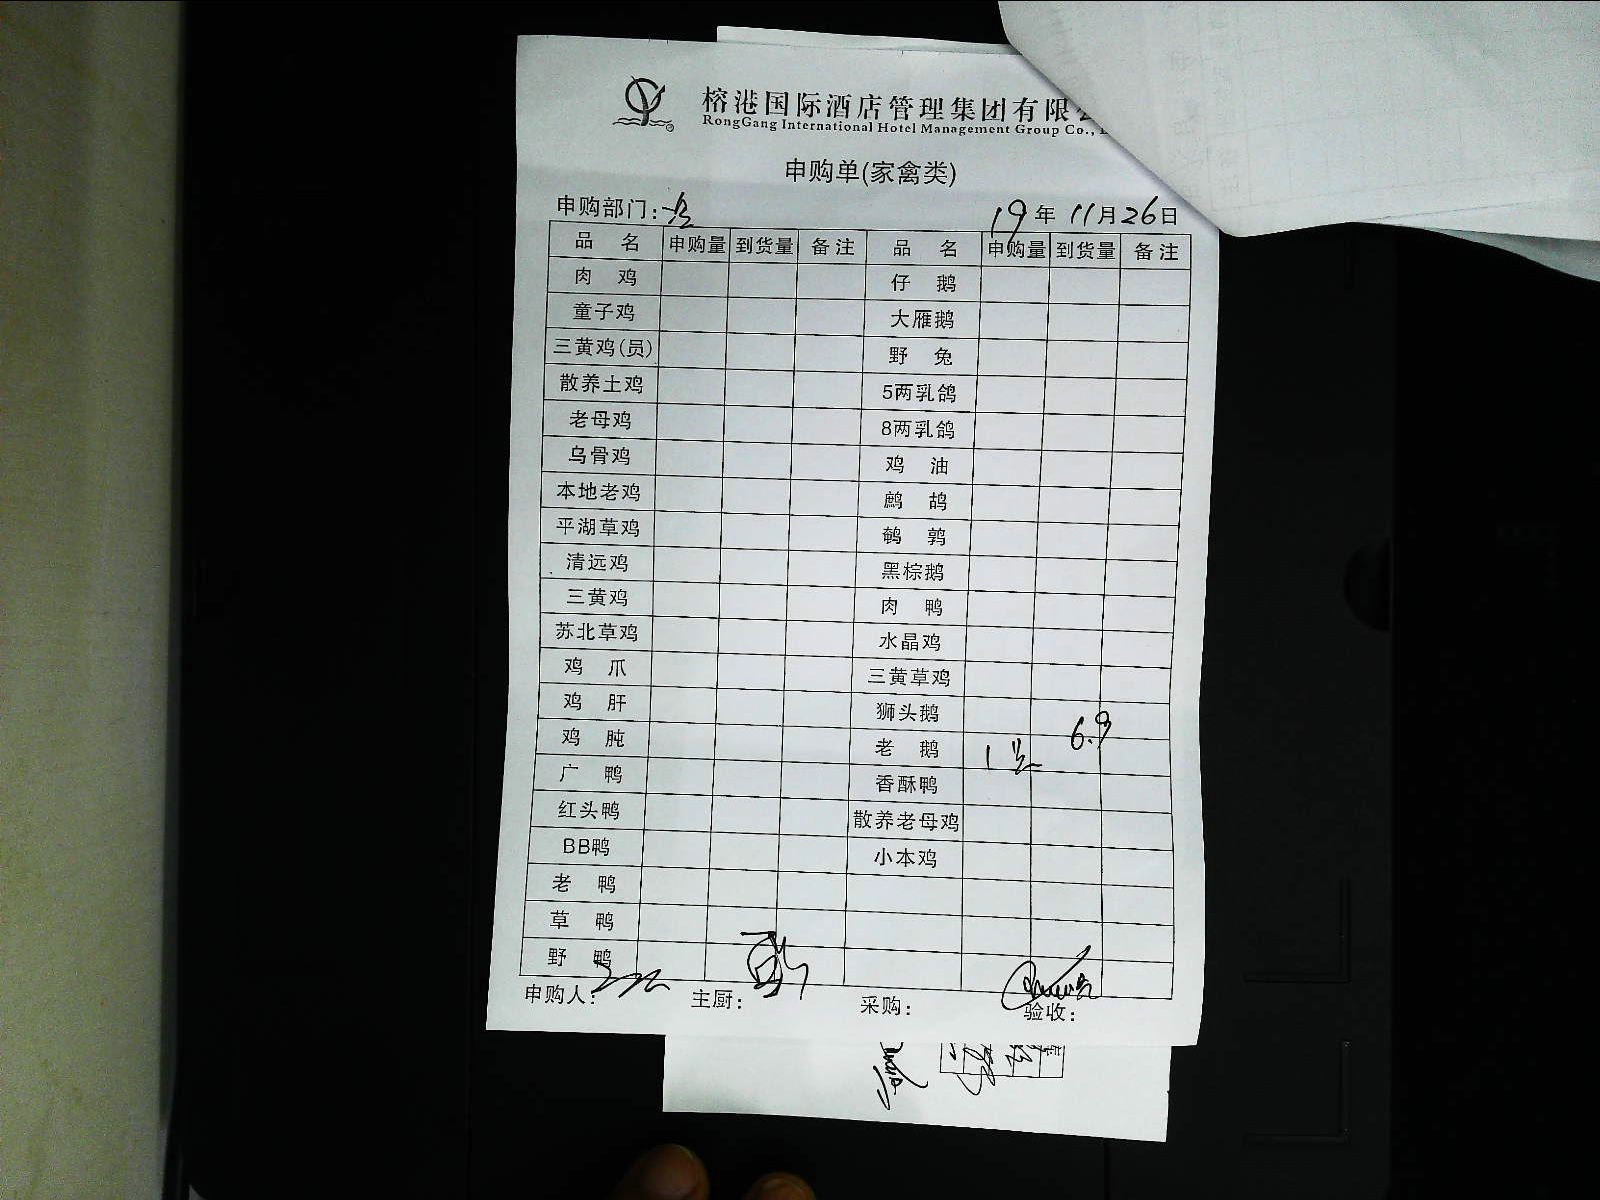 榕港国际酒店管理集团有限
RongGang International Hotel Management Group Co.,
申购单(家禽类)
申购部门: 19年11月26日
品 名 申购量 到货量 备注 品 名 申购量 到货量 备注
肉 鸡 仔 鹅
童子鸡 大雁鹅
三黄鸡(员) 野 兔
散养土鸡 5两乳鸽
老母鸡 8两乳鸽
乌骨鸡 鸡 油
本地老鸡 鹧 鸪
平湖草鸡 鹌 鹑
清远鸡 黑棕鹅
三黄鸡 肉 鸭
苏北草鸡 水晶鸡
鸡 爪 三黄草鸡
鸡 肝 狮头鹅
鸡 肫 老 鹅 1 6.9
广 鸭 香酥鸭
红头鸭 散养老母鸡
BB鸭 小本鸡
老 鸭
草 鸭
野 鸭
申购人: 主厨: 采购: 验收: